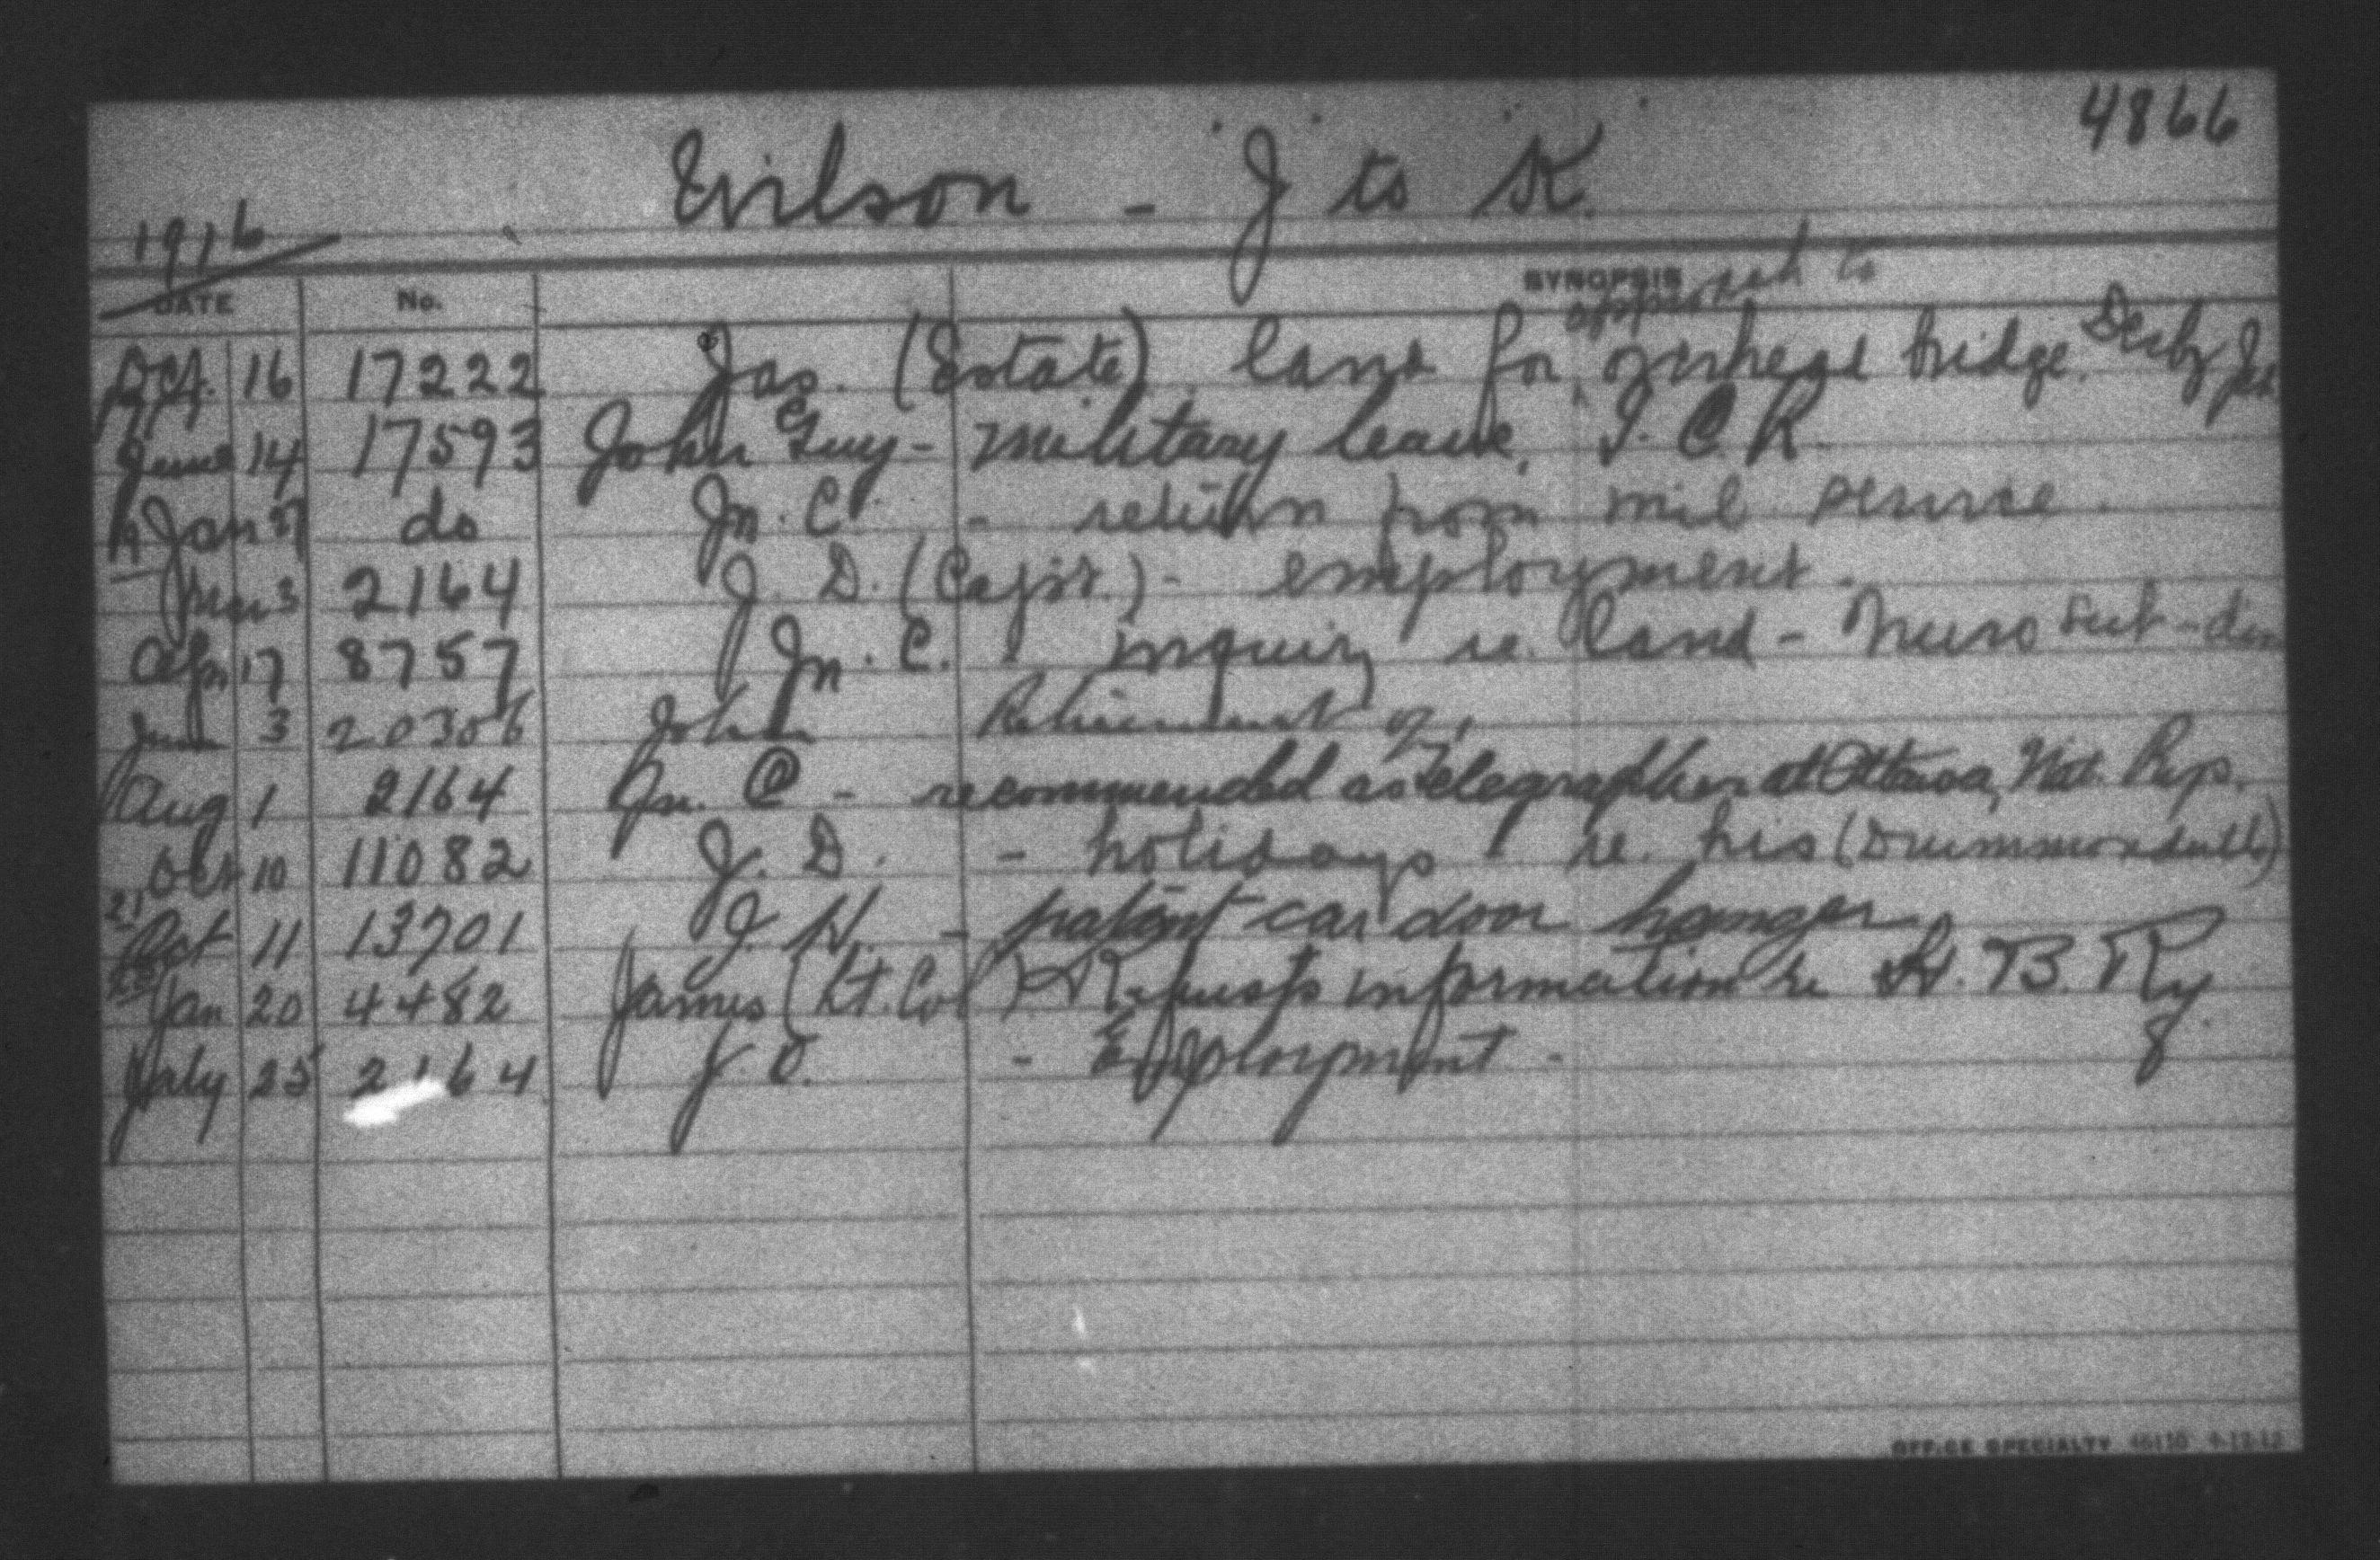 4866
Wilson - "J" to "K"
1916
DATE No. SYNOPSIS
approach to
Oct. 16 17222 Jas. (Estate) land for overhead bridge. Derby Jct
17
June 14 17593 John Guy - military leave, I.C.R.
19 Jan 27 do Jn. C. - return from mil service.
Mar 3 2164 J. D. (Capt.) - employment.
Apr 17 8757 Jn. C. - inquiry re. land - sub-div
June 3 20306 John Retirement of,
Aug 1 2164 Jn. C - recommended as telegrapher at Ottawa, Nat. Rys.
Oct 10 11082 J. D. - holidays re. his (Drummondville)
21
Oct 11 13701 J. H. - patent car door hanger
Jan 20 4482 James (Lt. Col) Requests information re H. B. Ry.
July 25 2164 J. D. - Employment - 8
OFFICE SPECIALTY 46110 9-12-12